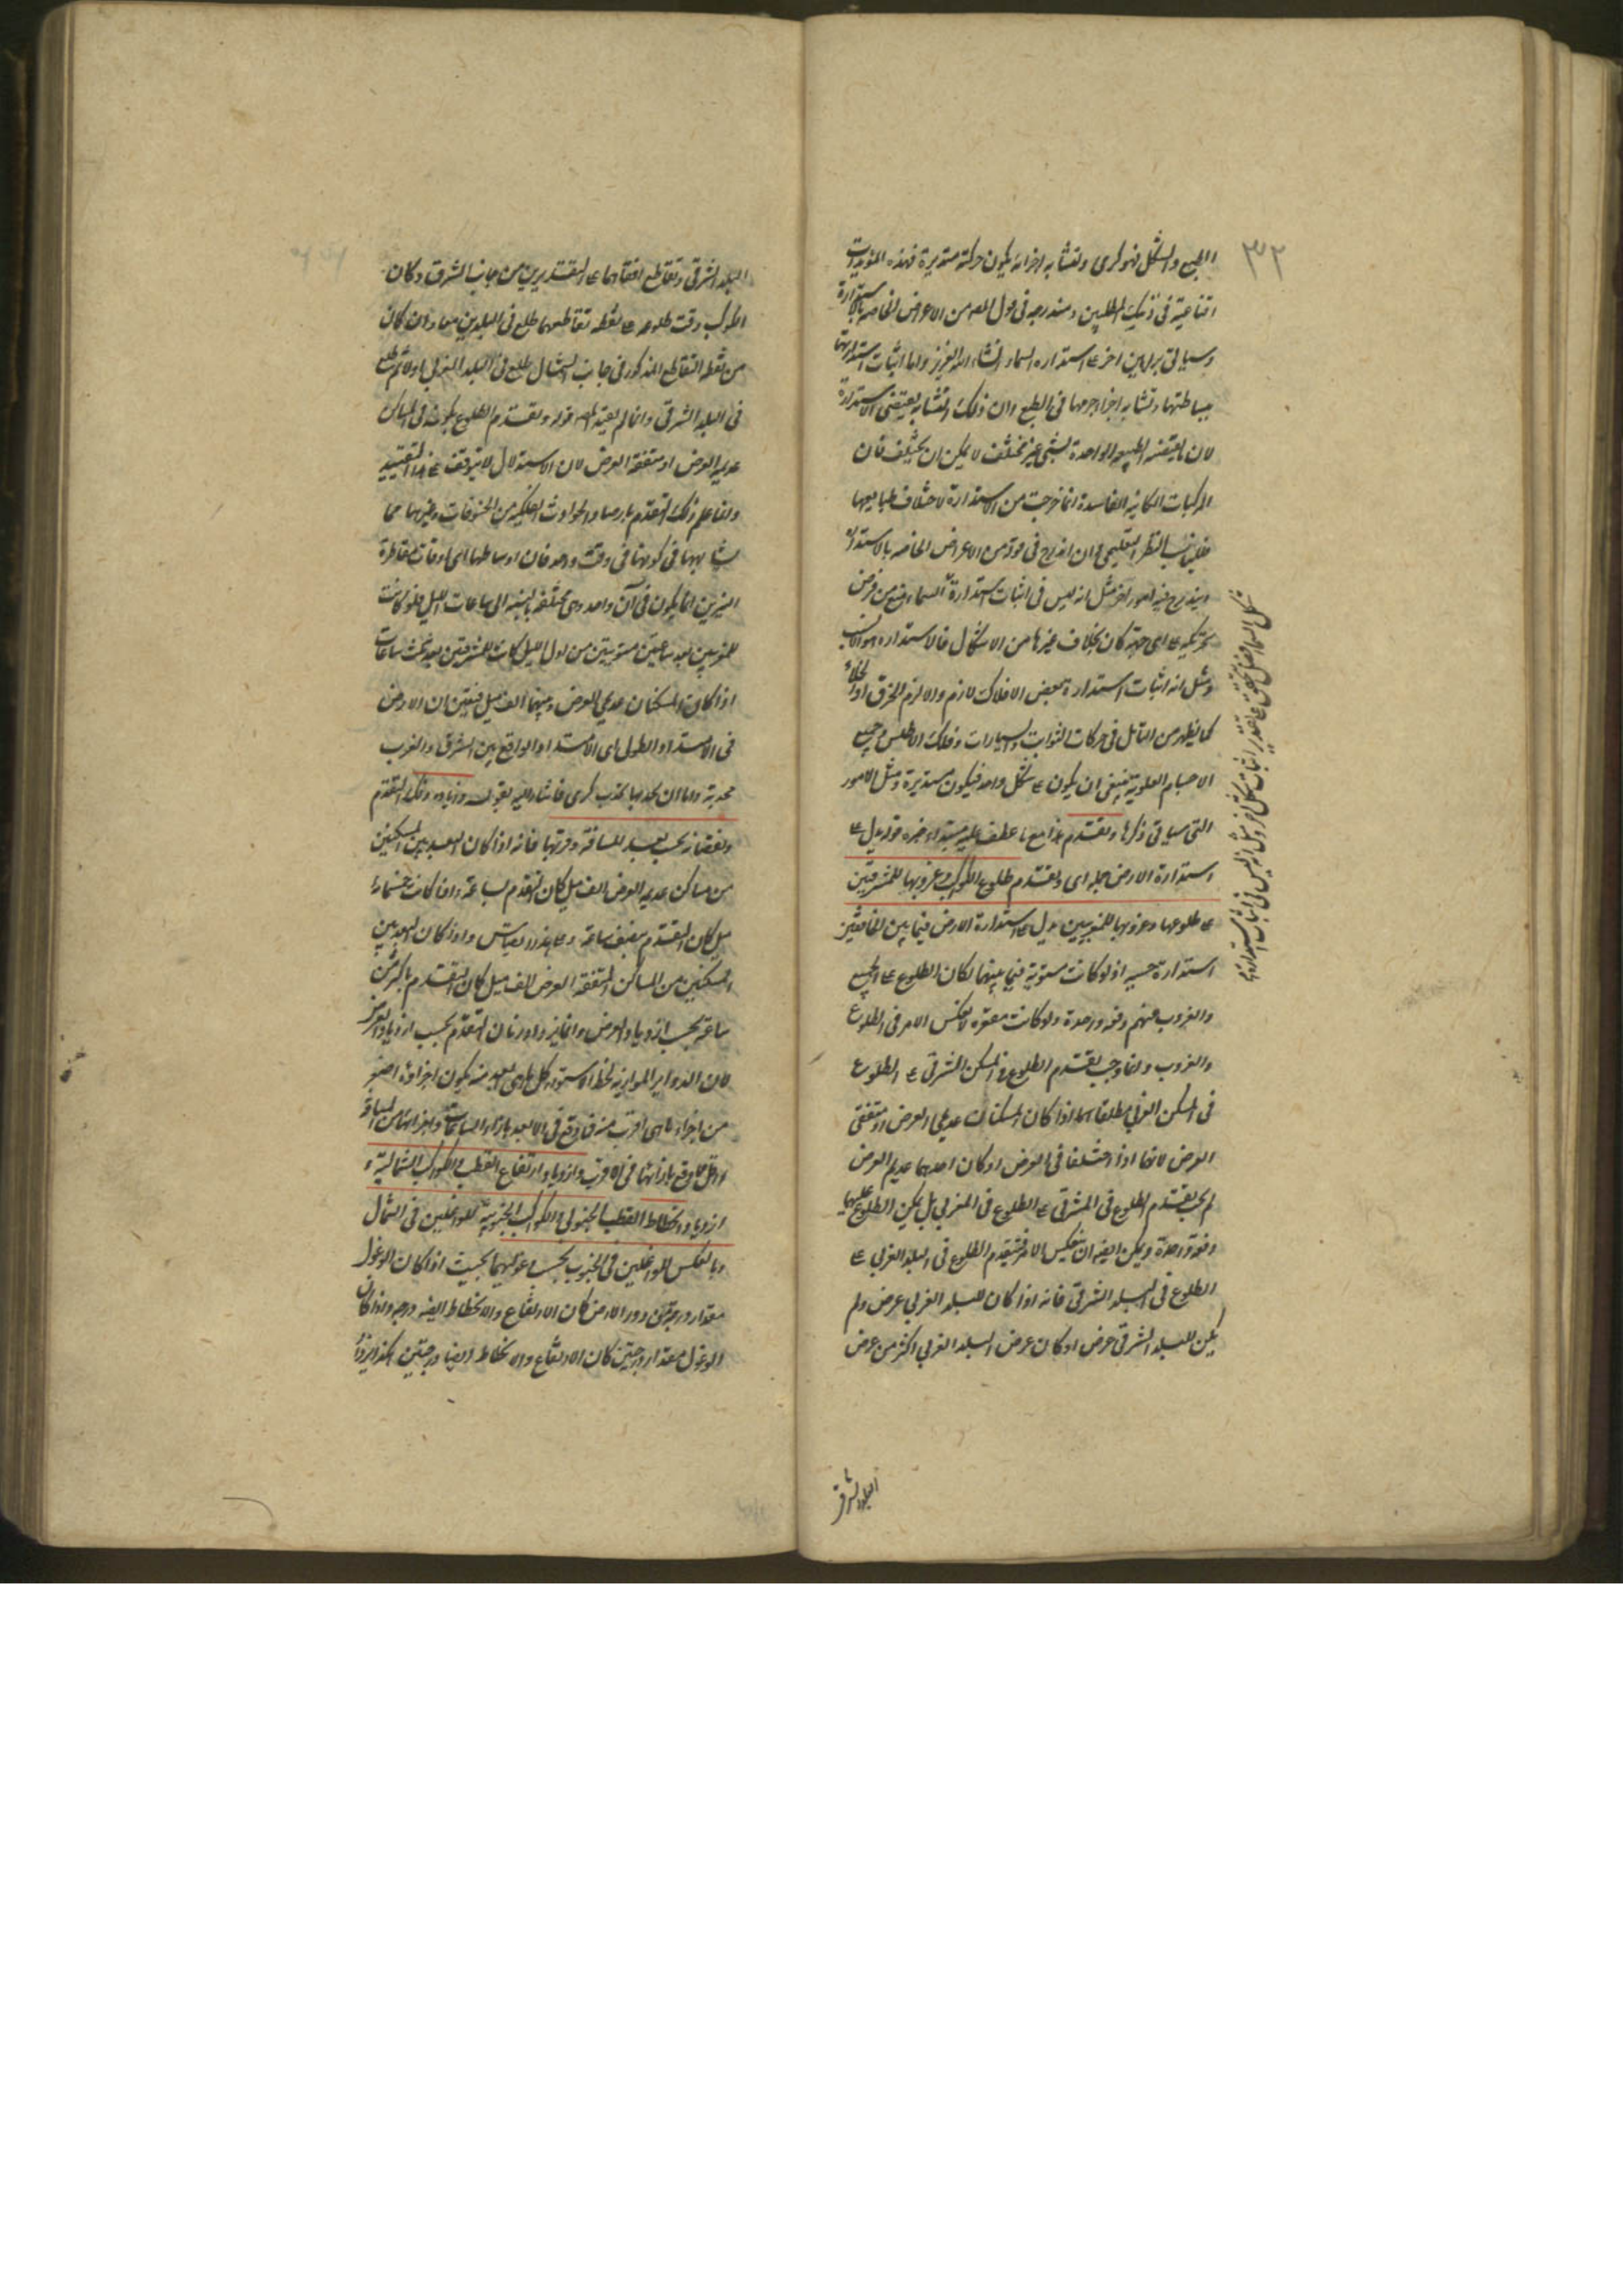 الطبع والشكل فهو كرى وتشابه اجزائه يكون حركته مستديرة فهذه المؤيدات
اقناعية فى ذينك المطلبين ومندرجه فى قول المص من الاعراض الخاصه بالاستدارة
وسياتى براهين اخر ع استداره السماء انشاء الله العزيز واما اثبات استدارتها
ببساطتها وتشابه اجزاء جرمها فى الطبع وان ذلك التشابه يقتضى الاستدارة
لان ما يقتضيه الطبيعه الواحدة لشئ غير مختلف لا يمكن ان يختلف فان
المركبات الكاينه الفاسدة انما خرجت من الاستدارة لاختلاف طبايعها
فلا يناسب النظر التعليمى وان اندرج فى قوله من الاعراض الخاصه بالاستدارة
ويندرج فيه امور اخر مثل انه ليس فى اثبات استدارة السماء منع من فرض
تحركه ع اى جهة كان بخلاف غيرها من الاشكال فالاستداره هو الانسب
ومثل انه اثبات استدارة بعض الافلاك لازم والا لزم الخرق او الخلاء
كما يظهر من التأمل فى حركات الثوابت والسيارات وفلك الاطلس وجميع
الاجسام العلوية ينبغى ان يكون ع شكل واحد فيكون مستديرة ومثل الامور
التى سياتى ذكرها وتقدم هذا مع ما عطف عليه مبتداء خبره قوله يدل ع
استدارة الارض جمله اى وتقدم طلوع الكواكب وغروبها للمشرقيين
ع طلوعها وغروبها للمغربيين يدل ع استدارة الارض فيما بين الخافقين
استدارة حسيه اذ لو كانت مستوية فيما بينهما لكان الطلوع ع الجميع
والغروب عنهم دفعه واحدة ولو كانت مقعره لانعكس الامر فى الطلوع
والغروب وانما وجب تقدم الطلوع فى المسكن الشرقى ع الطلوع
فى المسكن الغربى مطلقا اذا كان المسكنان عديمى العرض او متفقى
العرض لانهما اذا اختلفا فى العرض او كان احدهما عديم العرض
لم يجب تقدم الطلوع فى المشرقى ع الطلوع فى المغربى بل يمكن الطلوع عليهما
دفعة واحدة ويمكن ايضا ان ينعكس الامر فيتقدم الطلوع فى البلد الغربى ع
الطلوع فى البلد الشرقى فانه اذا كان للبلد الغربى عرض ولم
يكن للبلد الشرقى عرض او كان عرض البلد الغربى اكثر من عرض
البلد الشرقى
البلد الشرقى وتقاطع افقاهما ع التقديرين من جانب الشرق وكان
الكوكب وقت طلوعه ع نقطه تقاطعهما طلع فى البلدين معا وان كان
من نقطه التقاطع المذكور فى جانب الشمال طلع فى البلد المغربى اولا ثم طلع
فى البلد الشرقى وانما لم يقيد المص قوله وتقدم الطلوع بكونه فى المساكن
عديم العرض او متفقة العرض لان الاستدلال لا يتوقف ع هذا التقييد
وانما علم ذلك التقدم بارصاد الحوادث الفلكيه من الخسوفات وغيرهما مما
يشابهها فى كونها فى وقت واحد فان اوساطها اى اوقات مقاطرة
النيرين انما يكون فى آن واحد وهى مختلفه بالنسبه الى ساعات الليل فلو كانت
للمغربيين بعد ساعتين مستويتين من اول الليل كانت للمشرقيين بعد ثلث ساعات
اذا كان المسكنان عديمى العرض وبينهما الف ميل فتعين ان الارض
فى الامتداد الطولى اى الامتداد الواقع بين الشرق والغرب
محدبة واما ان تحدبها تحدب كرى فاشار اليه بقوله وازدياد ذلك التقدم
ونقصانه بحسب بعد المسافة وقربتها فانه اذا كان البعد بين المسكنين
من مساكن عديم العرض الف ميل كان التقدم بساعة واذا كانت خمسماية
ميل كان التقدم بنصف ساعة وع هذا القياس واذا كان البعد بين
المسكنين من المساكن المتفقه العرض الف ميل كان التقدم باكثر من
ساعة بحسب ازدياد العرض وانما يزداد زمان التقدم بحسب ازدياد العرض
لان الدواير الموازيه لخط الاستواء كل ما هى ابعد منه يكون اجزاؤه اصغر
من اجزاء ما هى اقرب منه فما وقع فى الابعد بازاء الساعات واجزائها من المسافة
اقل مما وقع بازائها فى الاقرب وازدياد ارتفاع القطب والكواكب الشمالية و
ازدياد انحطاط القطب الجنوبى والكواكب الجنوبية للواغلين فى الشمال
وبالعكس للواغلين فى الجنوب بحسب وغولهما بحيث اذا كان الوغول
مقدار درجة من دور الارض كان الارتفاع والانحطاط ايضا درجه واذا كان
الوغول مقدار درجتين كان الارتفاع والانحطاط ايضا درجتين هكذا يزداد